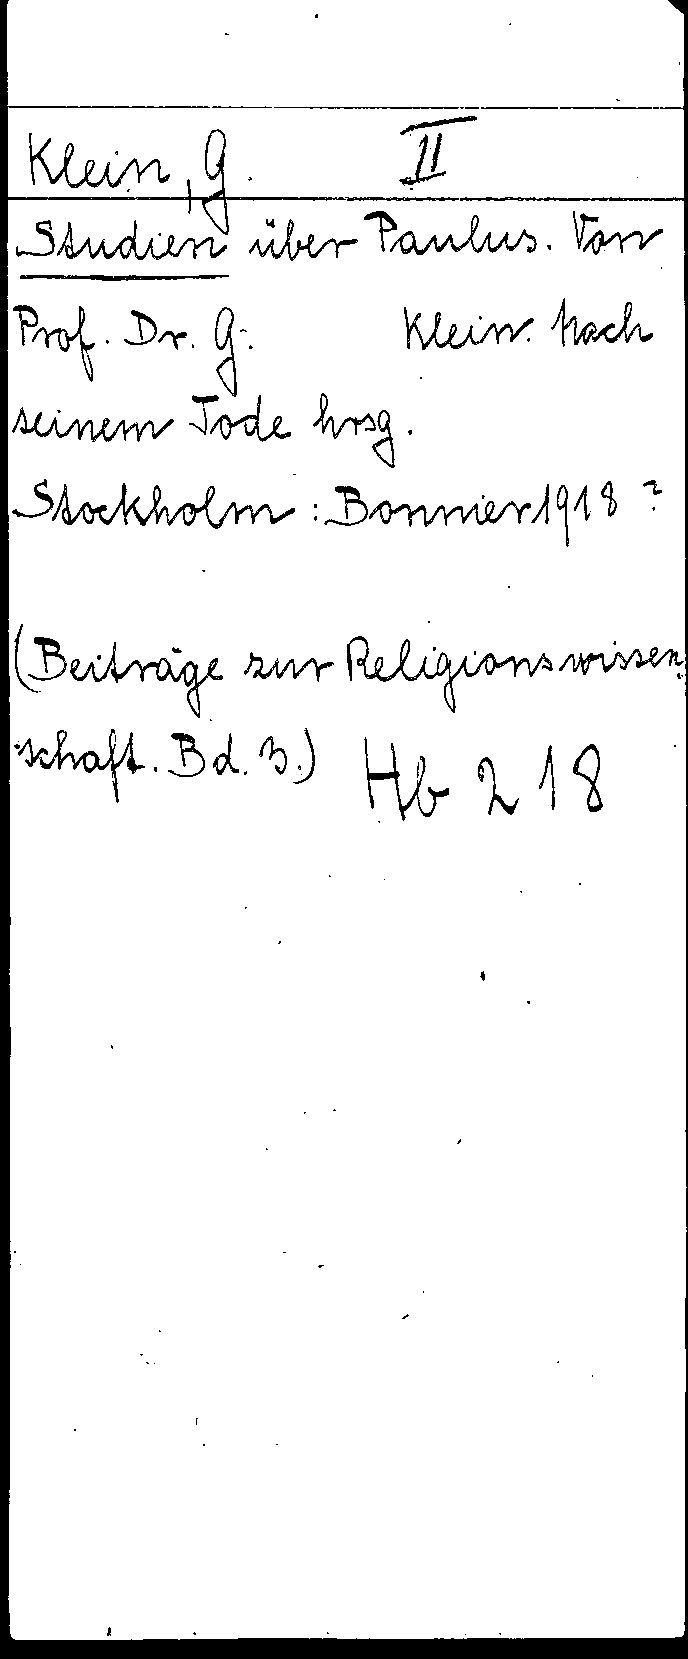 Klein, G. II
Studien über Paulus. Von
Prof. Dr. G. Klein. Nach
seinem Tode hrsg.
Stockholm: Bonnier 1918?
(Beiträge zur Religionswissen-
schaft. Bd. 3.) Hb 218